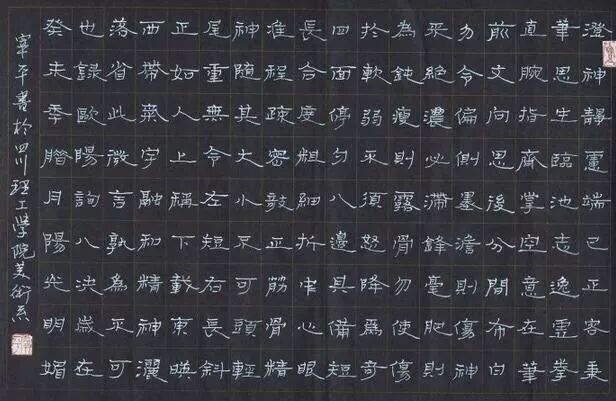 澄神靜慮端己正容秉
筆思生臨池志逸虛拳
直腕指齊掌空意在筆
前文向思後分間布白
勿令偏側墨澹則傷神
采絕濃必滯鋒毫肥則
為鈍瘦則露骨勿使傷
於軟弱不須怒降為奇
四面停勻八邊具備短
長合度粗細折中心眼
准程疏密敧正筋骨精
神隨其大小不可頭輕
尾重無令左短右長斜
正如人上稱下載東映
西帶氣宇融和精神灑
落省此微言孰為不可
也錄歐陽詢八決歲在
癸未季臘月陽光明媚
平書於四川理工學院美術系